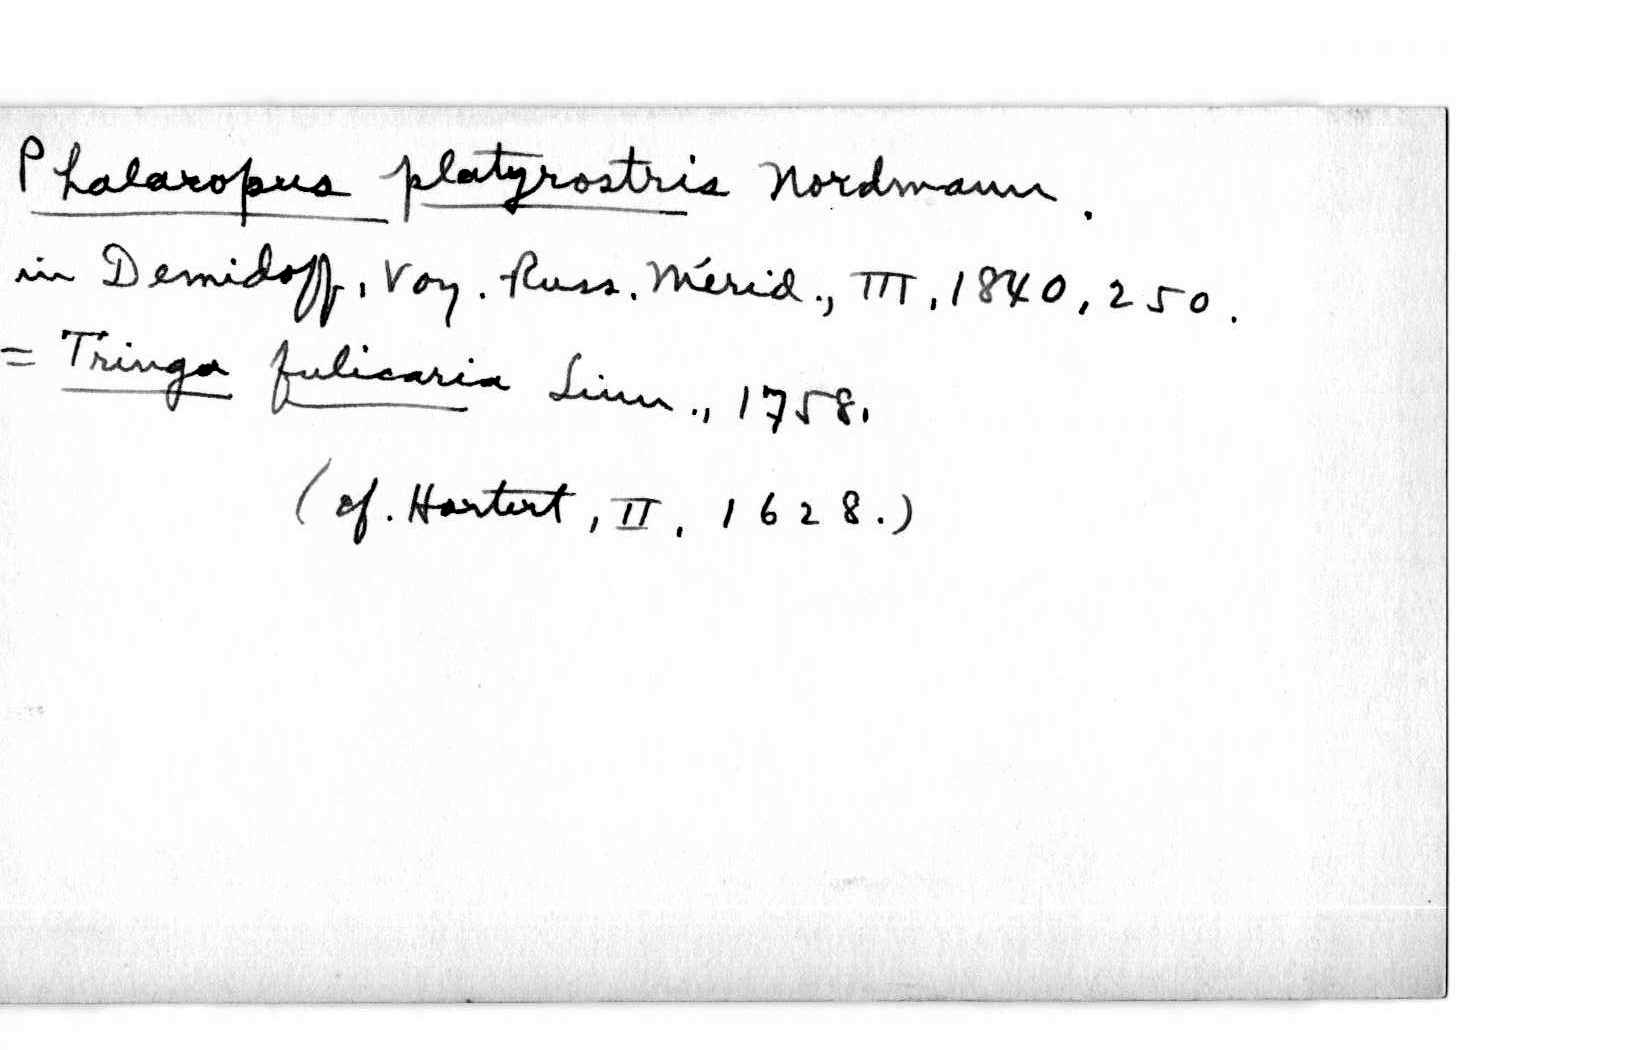 Phalaropus platyrostris Nordmann.
in Demidoff, Voy. Russ. Mérid., III, 1840, 250.
= Tringa fulicaria Linn., 1758.
(cf. Hartert, II, 1628.)